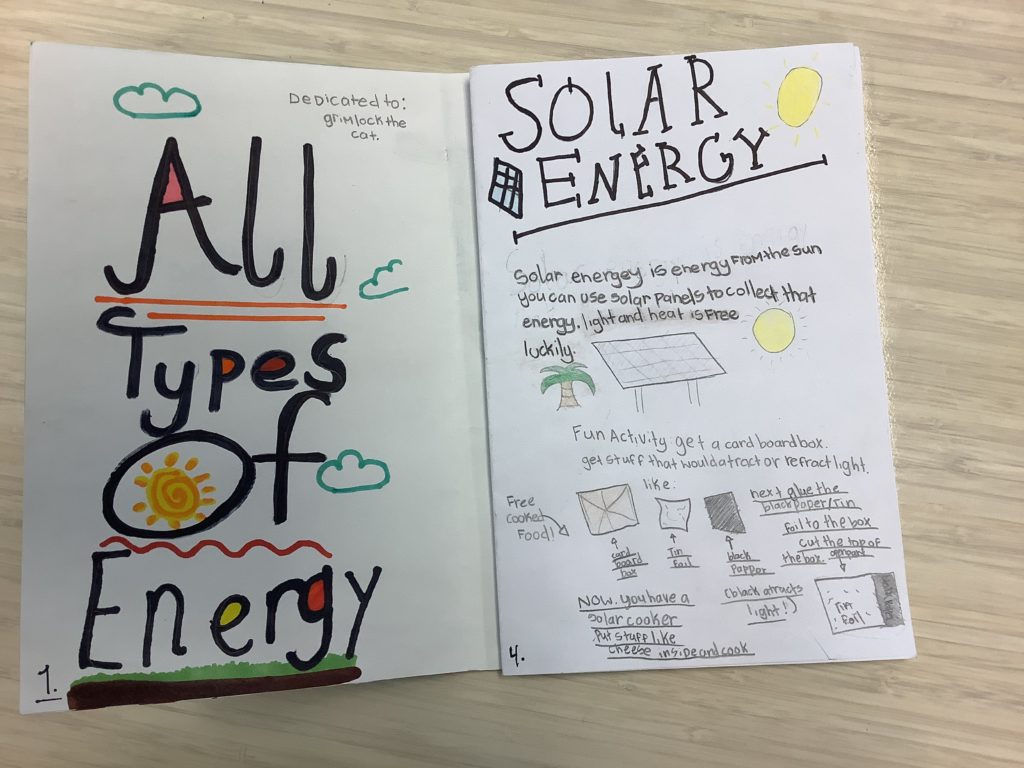 Dedicated to:
grimlock the
cat.
All
Types
Of
Energy
1.
SOLAR
ENERGY
Solar energey is energy from the sun
you can use solar panels to collect that
energy. light and heat is free
luckily.
Fun Activity: get a card board box.
get stuff that would atract or refract light.
like:
Free
cooked
Food!
card
board
box
Tin
Foil
black
Papper
next glue the
black paper/tin
foil to the box
cut the top of
the box
(black atracts
light!)
Tin
foil
NOW. you have a
solar cooker
Put stuff like
cheese inside and cook
4.